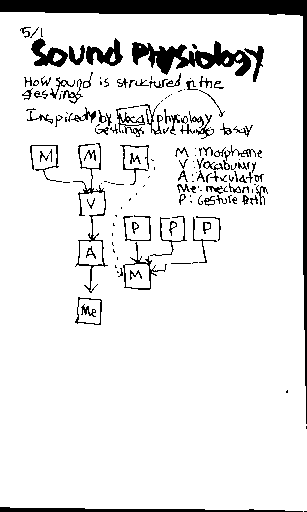 5/1
Sound Physiology
How sound is structured in the
gestlings
Inspired by Vocal physiology
Gestlings have things to say
M M M
M : Morpheme
V : Vocabulary
A : Articulator
Me : mechanism
P : Gesture Path
V
P P P
A
M
Me